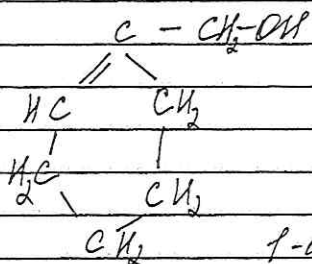 C - CH₂-OH
HC CH₂
H₂C CH₂
CH₂